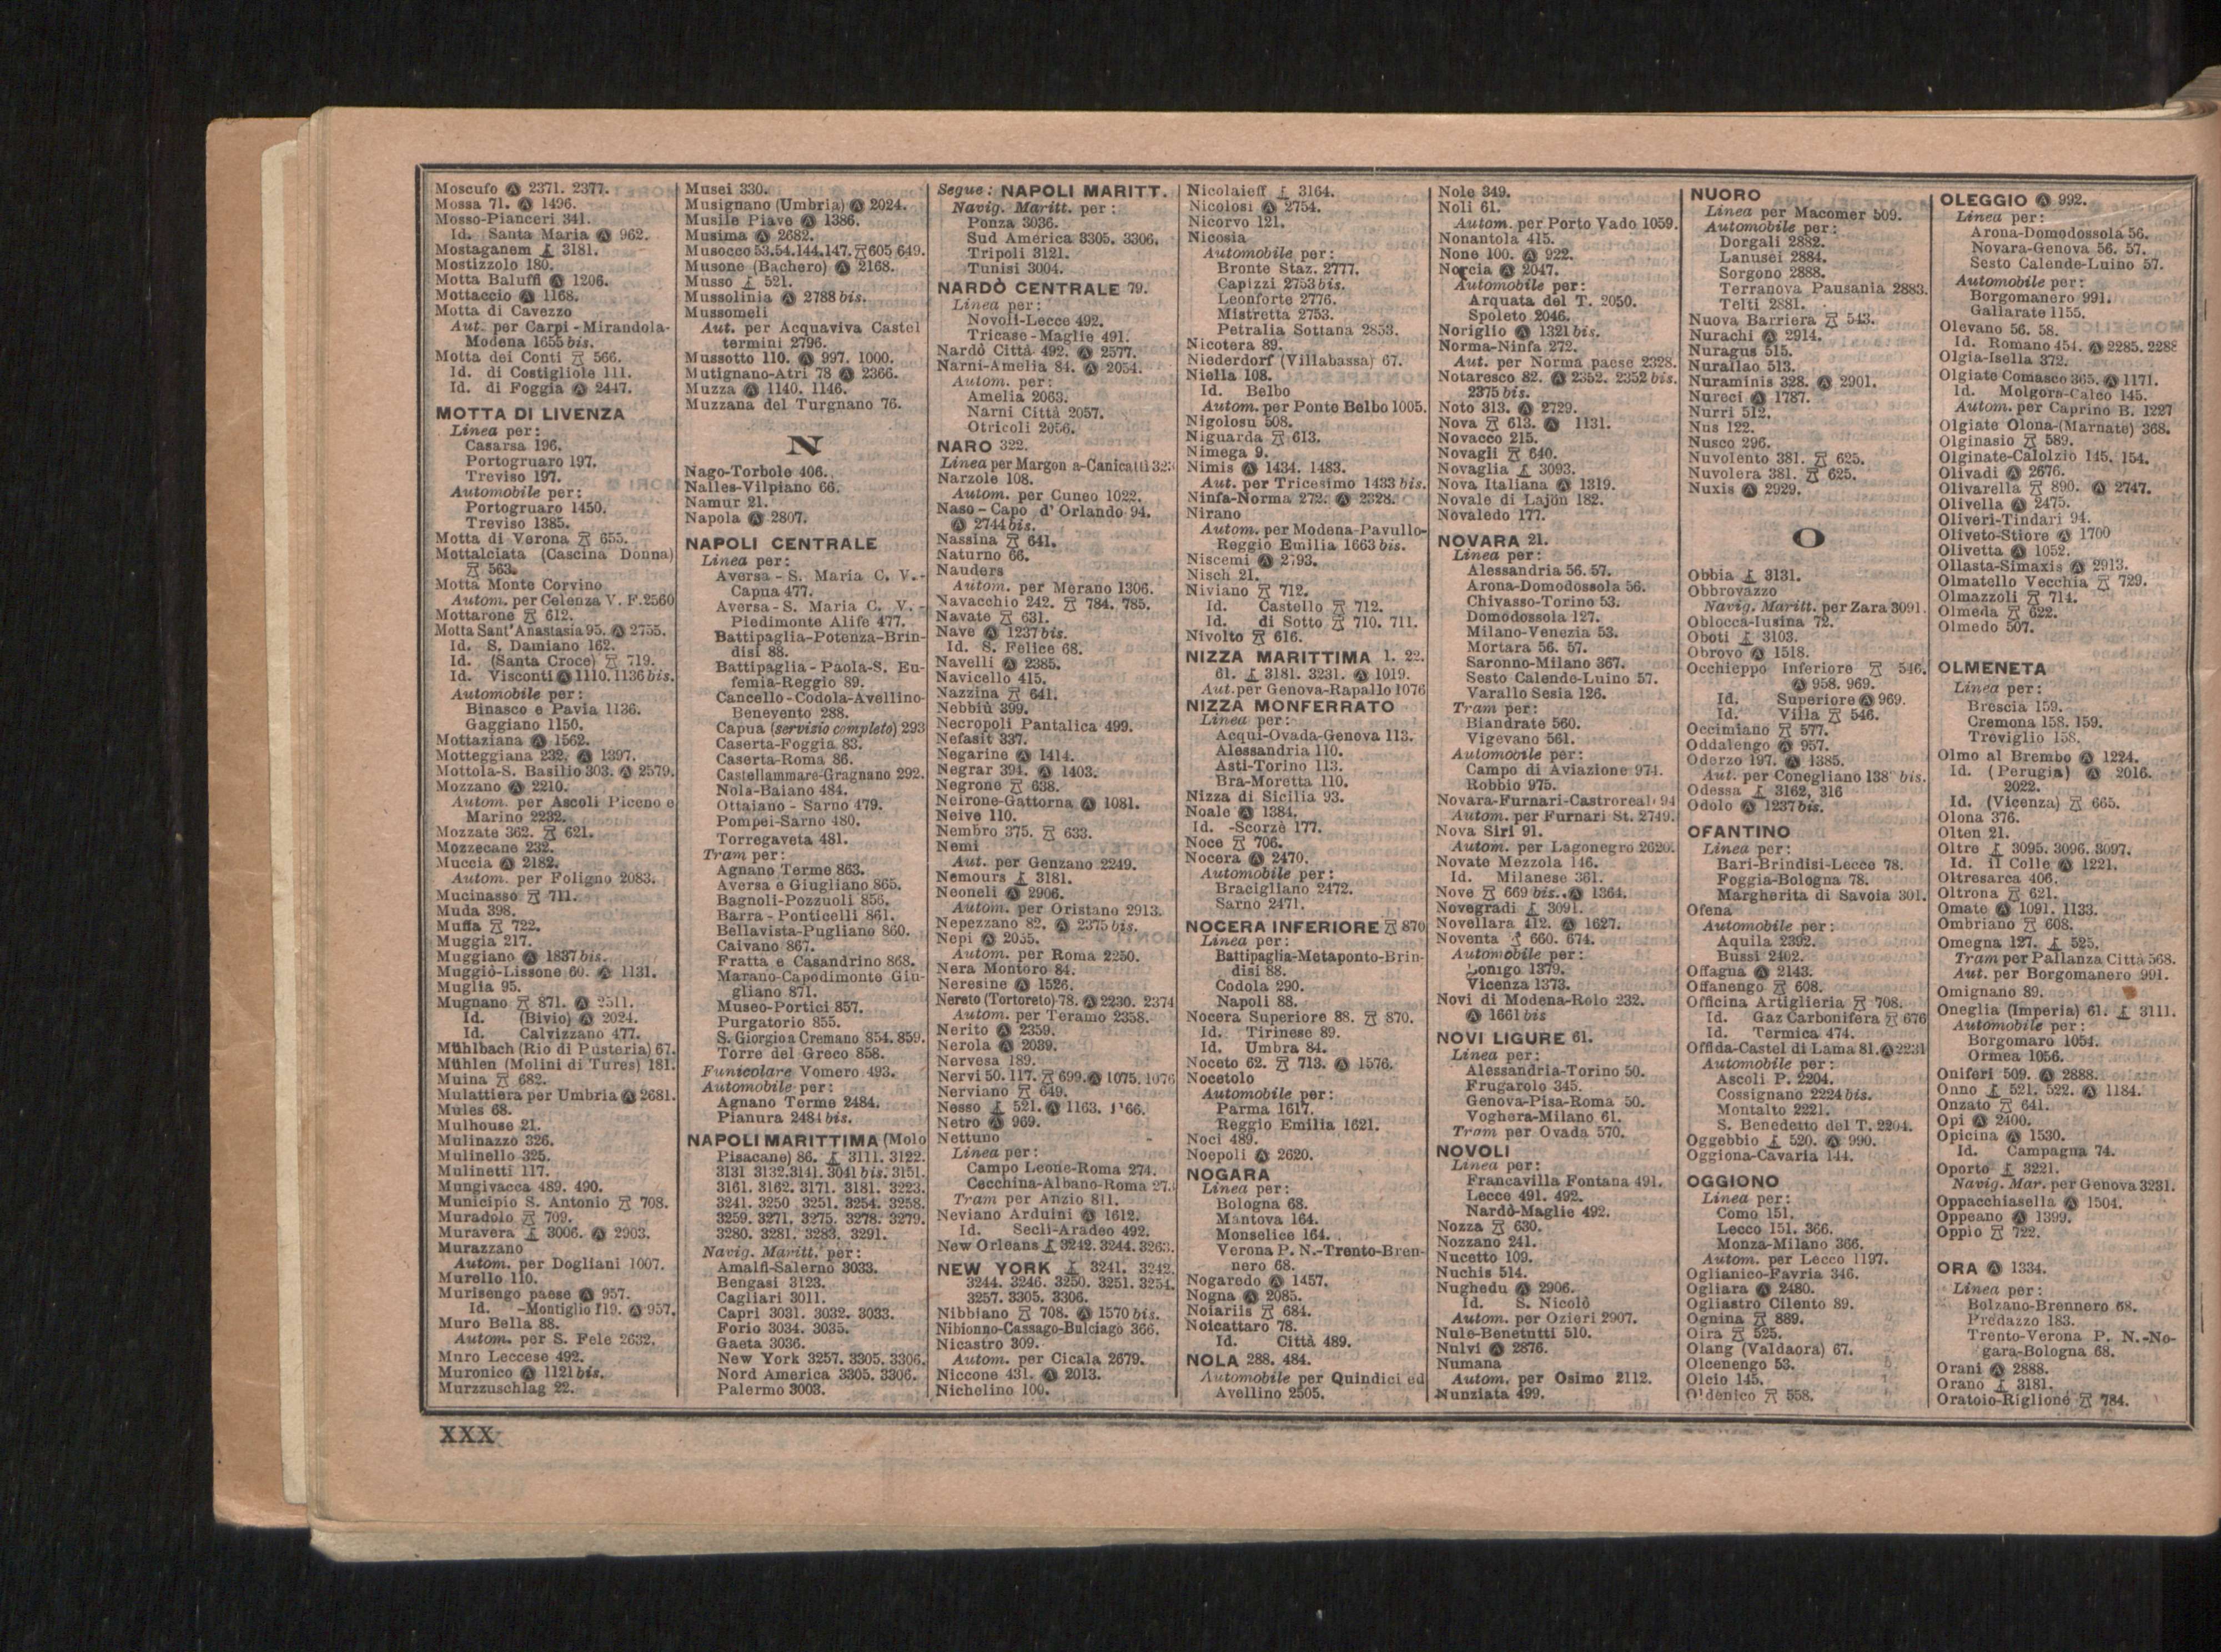 Moscufo Ⓐ 2371. 2377.
Mossa 71. Ⓐ 1496.
Mosso-Pianceri 341.
Id. Santa Maria Ⓐ 962.
Mostaganem 3181.
Mostizzolo 180.
Motta Baluffi Ⓐ 1206.
Mottaccio Ⓐ 1168.
Motta di Cavezzo
Aut. per Carpi-Mirandola-
Modena 1655 bis.
Motta dei Conti 566.
Id. di Costigliole 111.
Id. di Foggia Ⓐ 2447.
MOTTA DI LIVENZA
Linea per:
Casarsa 196.
Portogruaro 197.
Treviso 197.
Automobile per:
Portogruaro 1450.
Treviso 1385.
Motta di Verona 655.
Mottalciata (Cascina Donna)
563.
Motta Monte Corvino
Autom. per Celenza V. F. 2560
Mottarone 612.
Motta Sant'Anastasia 95. Ⓐ 2755.
Id. S. Damiano 162.
Id. (Santa Croce) 719.
Id. Visconti Ⓐ 1110. 1136 bis.
Automobile per:
Binasco e Pavia 1136.
Gaggiano 1150.
Mottaziana Ⓐ 1562.
Motteggiana 232. Ⓐ 1397.
Mottola-S. Basilio 303. Ⓐ 2579.
Mozzano Ⓐ 2210.
Autom. per Ascoli Piceno e
Marino 2232.
Mozzate 362. 621.
Mozzecane 232.
Muccia Ⓐ 2182.
Autom. per Foligno 2083.
Mucinasso 711.
Muda 398.
Muffa 722.
Muggia 217.
Muggiano Ⓐ 1837 bis.
Muggiò-Lissone 60. Ⓐ 1131.
Muglia 95.
Mugnano 871. Ⓐ 2511.
Id. (Bivio) Ⓐ 2024.
Id. Calvizzano 477.
Mühlbach (Rio di Pusteria) 67.
Mühlen (Molini di Tures) 181.
Muina 682.
Mulattiera per Umbria Ⓐ 2681.
Mules 68.
Mulhouse 21.
Mulinazzo 326.
Mulinello 325.
Mulinetti 117.
Mungivacca 489. 490.
Municipio S. Antonio 708.
Muradolo 709.
Muravera 3006. Ⓐ 2903.
Murazzano
Autom. per Dogliani 1007.
Murello 110.
Murisengo paese Ⓐ 957.
Id. -Montiglio 119. Ⓐ 957.
Muro Bella 88.
Autom. per S. Fele 2632.
Muro Leccese 492.
Muronico Ⓐ 1121 bis.
Murzzuschlag 22.
Musei 330.
Musignano (Umbria) Ⓐ 2024.
Musile Piave Ⓐ 1386.
Musima Ⓐ 2682.
Musocco 53. 54. 144. 147. 605 649.
Musone (Bachero) Ⓐ 2168.
Musso 521.
Mussolinia Ⓐ 2788 bis.
Mussomeli
Aut. per Acquaviva Castel
termini 2796.
Mussotto 110. Ⓐ 997. 1000.
Mutignano-Atri 78 Ⓐ 2366.
Muzza Ⓐ 1140. 1146.
Muzzana del Turgnano 76.
N
Nago-Torbole 406.
Nalles-Vilpiano 66.
Namur 21.
Napola Ⓐ 2807.
NAPOLI CENTRALE
Linea per:
Aversa-S. Maria C. V.-
Capua 477.
Aversa-S. Maria C. V.-
Piedimonte Alife 477.
Battipaglia-Potenza-Brin-
disi 88.
Battipaglia-Paola-S. Eu-
femia-Reggio 89.
Cancello-Codola-Avellino-
Benevento 288.
Capua (servizio completo) 293
Caserta-Foggia 83.
Caserta-Roma 86.
Castellammare-Gragnano 292.
Nola-Baiano 484.
Ottaiano-Sarno 479.
Pompei-Sarno 480.
Torregaveta 481.
Tram per:
Agnano Terme 863.
Aversa e Giugliano 865.
Bagnoli-Pozzuoli 856.
Barra-Ponticelli 861.
Bellavista-Pugliano 860.
Caivano 867.
Fratta e Casandrino 868.
Marano-Capodimonte Giu-
gliano 871.
Museo-Portici 857.
Purgatorio 855.
S. Giorgio a Cremano 854. 859.
Torre del Greco 858.
Funicolare Vomero 493.
Automobile per:
Agnano Terme 2484.
Pianura 2484 bis.
NAPOLI MARITTIMA (Molo
Pisacane) 86. 3111. 3122.
3131 3132. 3141. 3041 bis. 3151.
3161. 3162. 3171. 3181. 3223.
3241. 3250 3251. 3254. 3258.
3259. 3271. 3275. 3278. 3279.
3280. 3281. 3283. 3291.
Navig. Maritt. per:
Amalfi-Salerno 3033.
Bengasi 3123.
Cagliari 3011.
Capri 3031. 3032. 3033.
Forio 3034. 3035.
Gaeta 3036.
New York 3257. 3305. 3306.
Nord America 3305. 3306.
Palermo 3003.
Segue: NAPOLI MARITT.
Navig. Maritt. per:
Ponza 3036.
Sud America 3305. 3306.
Tripoli 3121.
Tunisi 3004.
NARDÒ CENTRALE 79.
Linea per:
Novoli-Lecce 492.
Tricase-Maglie 491.
Nardò Città 492. Ⓐ 2577.
Narni-Amelia 84. Ⓐ 2054.
Autom. per:
Amelia 2063.
Narni Città 2057.
Otricoli 2056.
NARO 322.
Linea per Margon a-Canicatti
Narzole 108.
Autom. per Cuneo 1022.
Naso-Capo d'Orlando 94.
Ⓐ 2744 bis.
Nassina 641.
Naturno 66.
Nauders
Autom. per Merano 1306.
Navacchio 242. 784. 785.
Navate 631.
Nave Ⓐ 1237 bis.
Id. S. Felice 68.
Navelli Ⓐ 2385.
Navicello 415.
Nazzina 641.
Nebbiù 399.
Necropoli Pantalica 499.
Nefasit 337.
Negarine Ⓐ 1414.
Negrar 394. Ⓐ 1403.
Negrone 638.
Neirone-Gattorna Ⓐ 1081.
Neive 110.
Nembro 375. 633.
Nemi
Aut. per Genzano 2249.
Nemours 3181.
Neoneli Ⓐ 2906.
Autom. per Oristano 2913.
Nepezzano 82. Ⓐ 2375 bis.
Nepi Ⓐ 2055.
Autom. per Roma 2250.
Nera Montoro 84.
Neresine Ⓐ 1526.
Nereto (Tortoreto) 78. Ⓐ 2230. 2374
Autom. per Teramo 2358.
Nerito Ⓐ 2359.
Nerola Ⓐ 2039.
Nervesa 189.
Nervi 50. 117. 699. Ⓐ 1075. 1076
Nerviano 649.
Nesso 521. Ⓐ 1163.
Netro Ⓐ 969.
Nettuno
Linea per:
Campo Leone-Roma 274.
Cecchina-Albano-Roma
Tram per Anzio 811.
Neviano Arduini Ⓐ 1612.
Id. Secli-Aradeo 492.
New Orleans 3242. 3244. 3263.
NEW YORK 3241. 3242.
3244. 3246. 3250. 3251. 3254.
3257. 3305. 3306.
Nibbiano 708. Ⓐ 1570 bis.
Nibionno-Cassago-Bulciago 366.
Nicastro 309.
Autom. per Cicala 2679.
Niccone 431. Ⓐ 2013.
Nichelino 100.
Nicolaieff 3164.
Nicolosi Ⓐ 2754.
Nicorvo 121.
Nicosia
Automobile per:
Bronte Staz. 2777.
Capizzi 2753 bis.
Leonforte 2776.
Mistretta 2753.
Petralia Sottana 2853.
Nicotera 89.
Niederdorf (Villabassa) 67.
Niella 108.
Id. Belbo
Autom. per Ponte Belbo 1005.
Nigolosu 508.
Niguarda 613.
Nimega 9.
Nimis Ⓐ 1434. 1483.
Aut. per Tricesimo 1433 bis.
Ninfa-Norma 272. Ⓐ 2328.
Nirano
Autom. per Modena-Pavullo-
Reggio Emilia 1663 bis.
Niscemi Ⓐ 2793.
Nisch 21.
Niviano 712.
Id. Castello 712.
Id. di Sotto 710. 711.
Nivolto 616.
NIZZA MARITTIMA 1. 22.
61. 3181. 3231. Ⓐ 1019.
Aut. per Genova-Rapallo 1076
NIZZA MONFERRATO
Linea per:
Acqui-Ovada-Genova 113.
Alessandria 110.
Asti-Torino 113.
Bra-Moretta 110.
Nizza di Sicilia 93.
Noale Ⓐ 1384.
Id. -Scorzè 177.
Noce 706.
Nocera Ⓐ 2470.
Automobile per:
Bracigliano 2472.
Sarno 2471.
NOCERA INFERIORE 870
Linea per:
Battipaglia-Metaponto-Brin-
disi 88.
Codola 290.
Napoli 88.
Nocera Superiore 88. 870.
Id. Tirinese 89.
Id. Umbra 84.
Noceto 62. 713. Ⓐ 1576.
Nocetolo
Automobile per:
Parma 1617.
Reggio Emilia 1621.
Noci 489.
Noepoli Ⓐ 2620.
NOGARA
Linea per:
Bologna 68.
Mantova 164.
Monselice 164.
Verona P. N.-Trento-Bren-
nero 68.
Nogaredo Ⓐ 1457.
Nogna Ⓐ 2085.
Noiariis 684.
Noicattaro 78.
Id. Città 489.
NOLA 288. 484.
Automobile per Quindici ed
Avellino 2505.
Nole 349.
Noli 61.
Autom. per Porto Vado 1059.
Nonantola 415.
None 100. Ⓐ 922.
Norcia Ⓐ 2047.
Automobile per:
Arquata del T. 2050.
Spoleto 2046.
Noriglio Ⓐ 1321 bis.
Norma-Ninfa 272.
Aut. per Norma paese 2328.
Notaresco 82. Ⓐ 2352. 2352 bis.
2375 bis.
Noto 313. Ⓐ 2729.
Nova 613. Ⓐ 1131.
Novacco 215.
Novagli 640.
Novaglia 3093.
Nova Italiana Ⓐ 1319.
Novale di Lajon 182.
Novaledo 177.
NOVARA 21.
Linea per:
Alessandria 56. 57.
Arona-Domodossola 56.
Chivasso-Torino 53.
Domodossola 127.
Milano-Venezia 53.
Mortara 56. 57.
Saronno-Milano 367.
Sesto Calende-Luino 57.
Varallo Sesia 126.
Tram per:
Biandrate 560.
Vigevano 561.
Automobile per:
Campo di Aviazione 974.
Robbio 975.
Novara-Furnari-Castroreale 94
Autom. per Furnari St. 2749.
Nova Siri 91.
Autom. per Lagonegro 2620.
Novate Mezzola 146.
Id. Milanese 361.
Nove 669 bis. Ⓐ 1364.
Novegradi 3091.
Novellara 412. Ⓐ 1627.
Noventa 660. 674.
Automobile per:
Lonigo 1379.
Vicenza 1373.
Novi di Modena-Rolo 232.
Ⓐ 1661 bis
NOVI LIGURE 61.
Linea per:
Alessandria-Torino 50.
Frugarolo 345.
Genova-Pisa-Roma 50.
Voghera-Milano 61.
Tram per Ovada 570.
NOVOLI
Linea per:
Francavilla Fontana 491.
Lecce 491. 492.
Nardò-Maglie 492.
Nozza 630.
Nozzano 241.
Nucetto 109.
Nuchis 514.
Nughedu Ⓐ 2906.
Id. S. Nicolò
Autom. per Ozieri 2907.
Nule-Benetutti 510.
Nulvi Ⓐ 2876.
Numana
Autom. per Osimo 2112.
Nunziata 499.
NUORO
Linea per Macomer 509.
Automobile per:
Dorgali 2882.
Lanusei 2884.
Sorgono 2888.
Terranova Pausania 2883.
Telti 2881.
Nuova Barriera 543.
Nurachi Ⓐ 2914.
Nuragus 515.
Nurallao 513.
Nuraminis 328. Ⓐ 2901.
Nureci Ⓐ 1787.
Nurri 512.
Nus 122.
Nusco 296.
Nuvolento 381. 625.
Nuvolera 381. 625.
Nuxis Ⓐ 2929.
O
Obbia 3131.
Obbrovazzo
Navig. Maritt. per Zara 3091.
Oblocca-Iusina 72.
Oboti 3103.
Obrovo Ⓐ 1518.
Occhieppo Inferiore 546.
Ⓐ 958. 969.
Id. Superiore Ⓐ 969.
Id. Villa 546.
Occimiano 577.
Oddalengo Ⓐ 957.
Oderzo 197. Ⓐ 1385.
Aut. per Conegliano 138 bis.
Odessa 3162, 316
Odolo Ⓐ 1237 bis.
OFANTINO
Linea per:
Bari-Brindisi-Lecce 78.
Foggia-Bologna 78.
Margherita di Savoia 301.
Ofena
Automobile per:
Aquila 2392.
Bussi 2402.
Offagna Ⓐ 2143.
Offanengo 608.
Officina Artiglieria 708.
Id. Gaz Carbonifera 676
Id. Termica 474.
Offida-Castel di Lama 81. Ⓐ 2231
Automobile per:
Ascoli P. 2204.
Cossignano 2224 bis.
Montalto 2221.
S. Benedetto del T. 2204.
Oggebbio 520. Ⓐ 990.
Oggiona-Cavaria 144.
OGGIONO
Linea per:
Como 151.
Lecco 151. 366.
Monza-Milano 366.
Autom. per Lecco 1197.
Oglianico-Favria 346.
Ogliara Ⓐ 2480.
Ogliastro Cilento 89.
Ognina 889.
Oira 525.
Olang (Valdaora) 67.
Olcenengo 53.
Olcio 145.
Oldenico 558.
OLEGGIO Ⓐ 992.
Linea per:
Arona-Domodossola 56.
Novara-Genova 56. 57.
Sesto Calende-Luino 57.
Automobile per:
Borgomanero 991.
Gallarate 1155.
Olevano 56. 58.
Id. Romano 454. Ⓐ 2285. 2288
Olgia-Isella 372.
Olgiate Comasco 365. Ⓐ 1171.
Id. Molgora-Calco 145.
Autom. per Caprino B. 1227
Olgiate Olona-(Marnate) 368.
Olginasio 589.
Olginate-Calolzio 145. 154.
Olivadi Ⓐ 2676.
Olivarella 890. Ⓐ 2747.
Olivella Ⓐ 2475.
Oliveri-Tindari 94.
Oliveto-Stiore Ⓐ 1700
Olivetta Ⓐ 1052.
Ollasta-Simaxis Ⓐ 2913.
Olmatello Vecchia 729.
Olmazzoli 714.
Olmeda 622.
Olmedo 507.
OLMENETA
Linea per:
Brescia 159.
Cremona 158. 159.
Treviglio 158.
Olmo al Brembo Ⓐ 1224.
Id. (Perugia) Ⓐ 2016.
2022.
Id. (Vicenza) 665.
Olona 376.
Olten 21.
Oltre 3095. 3096. 3097.
Id. il Colle Ⓐ 1221.
Oltresarca 406.
Oltrona 621.
Omate Ⓐ 1091. 1133.
Ombriano 608.
Omegna 127. 525.
Tram per Pallanza Città 568.
Aut. per Borgomanero 991.
Omignano 89.
Oneglia (Imperia) 61. 3111.
Automobile per:
Borgomaro 1054.
Ormea 1056.
Oniferi 509. Ⓐ 2888.
Onno 521. 522. Ⓐ 1184.
Onzato 641.
Opi Ⓐ 2400.
Opicina Ⓐ 1530.
Id. Campagna 74.
Oporto 3221.
Navig. Mar. per Genova 3231.
Oppacchiasella Ⓐ 1504.
Oppeano Ⓐ 1399.
Oppio 722.
ORA Ⓐ 1334.
Linea per:
Bolzano-Brennero 68.
Predazzo 183.
Trento-Verona P. N.-No-
gara-Bologna 68.
Orani Ⓐ 2888.
Orano 3181.
Oratoio-Riglione 784.
XXX